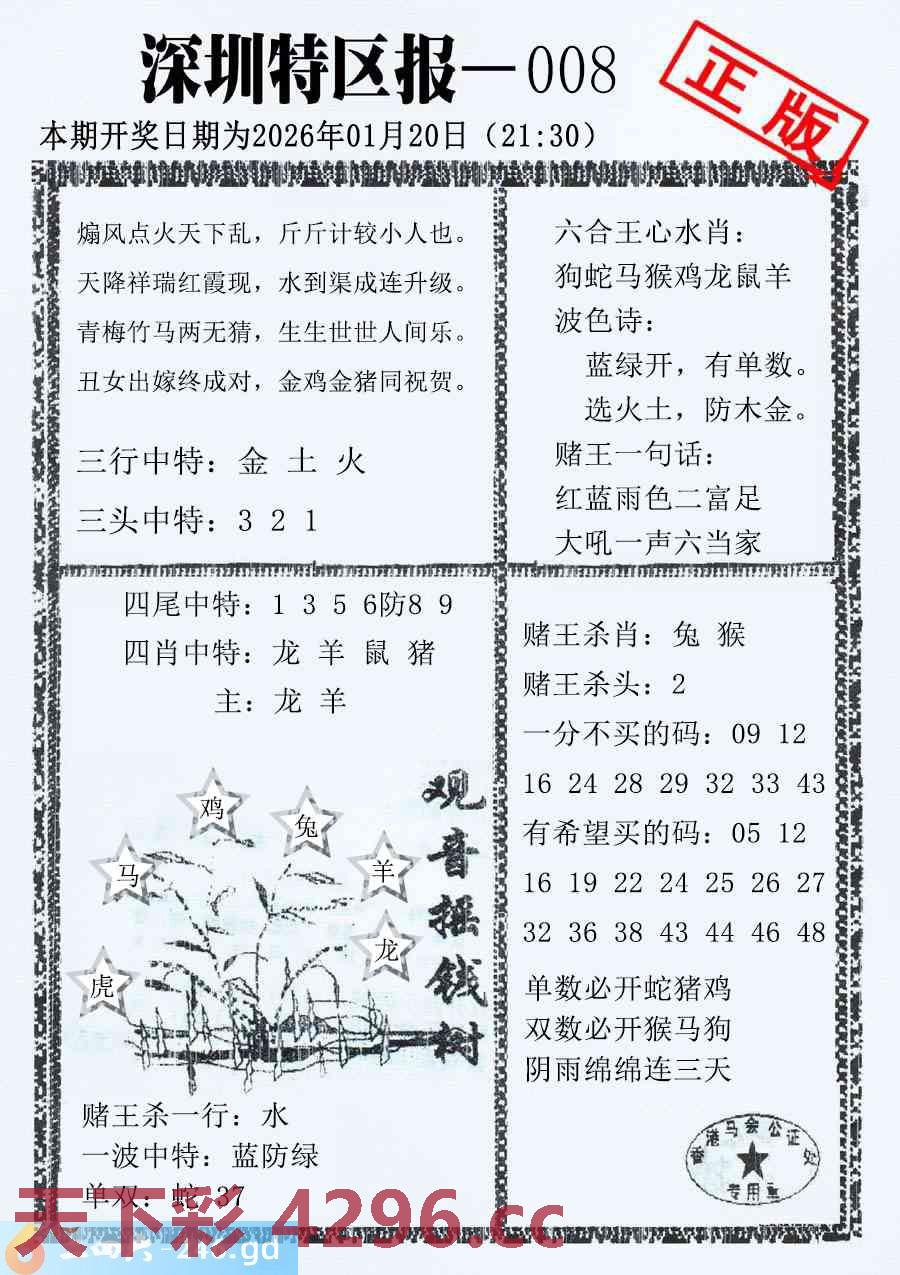 深圳特区报—008
正版
本期开奖日期为2026年01月20日（21:30）
煽风点火天下乱，斤斤计较小人也。
天降祥瑞红霞现，水到渠成连升级。
青梅竹马两无猜，生生世世人间乐。
丑女出嫁终成对，金鸡金猪同祝贺。
三行中特：金 土 火
三头中特：3 2 1
六合王心水肖：
狗蛇马猴鸡龙鼠羊
波色诗：
蓝绿开，有单数。
选火土，防木金。
赌王一句话：
红蓝雨色二富足
大吼一声六当家
四尾中特：1 3 5 6防8 9
四肖中特：龙 羊 鼠 猪
主：龙 羊
鸡
兔
马
羊
龙
虎
观音摇钱树
赌王杀一行：水
一波中特：蓝防绿
单双：蛇 37
赌王杀肖：兔 猴
赌王杀头：2
一分不买的码：09 12
16 24 28 29 32 33 43
有希望买的码：05 12
16 19 22 24 25 26 27
32 36 38 43 44 46 48
单数必开蛇猪鸡
双数必开猴马狗
阴雨绵绵连三天
香港马会公证处
专用章
天下彩 4296.cc